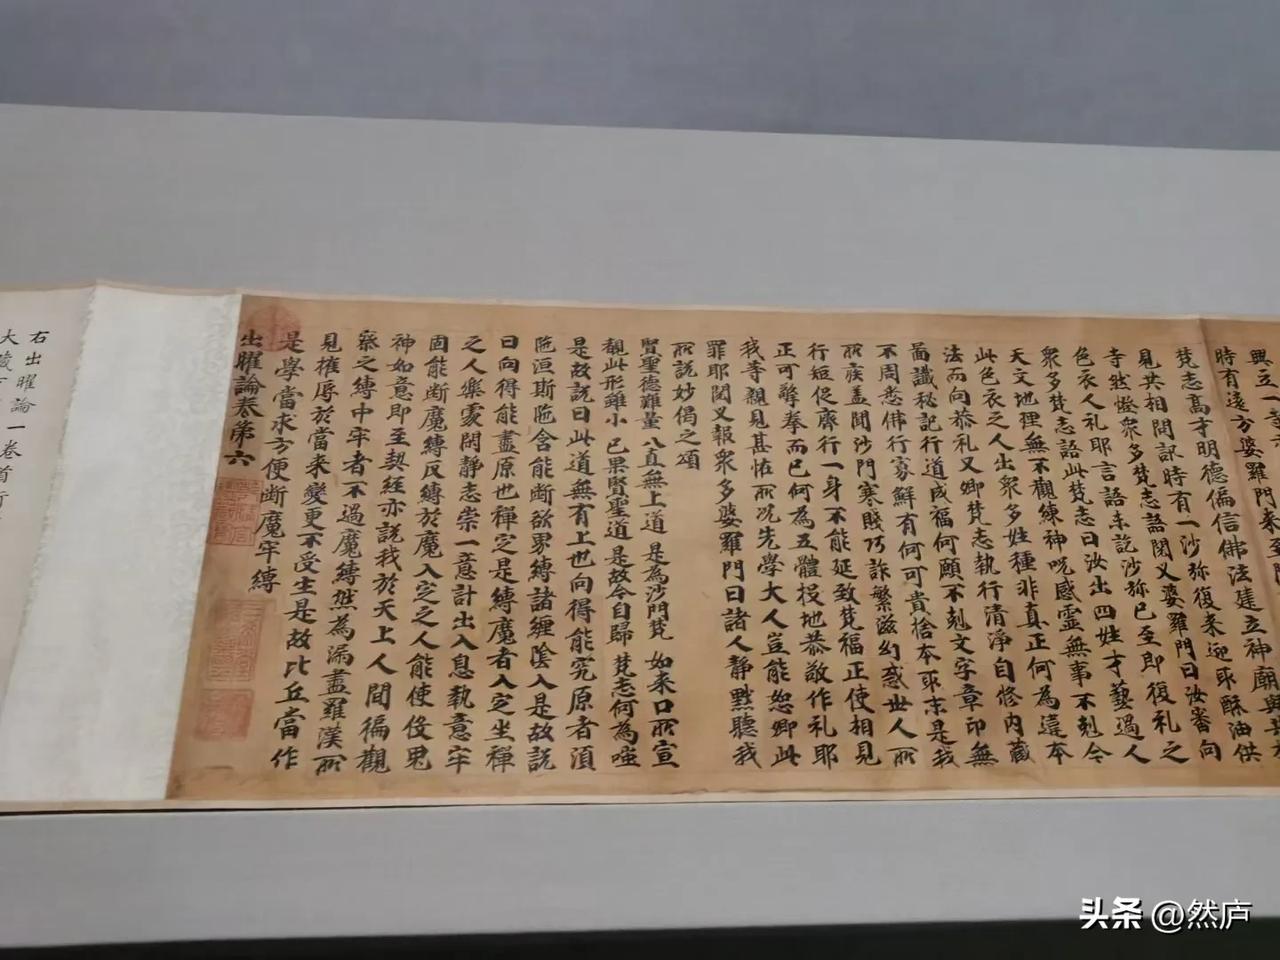 時有遠方婆羅門来至
梵志高才明德偏信佛法建立神廟
見共相問訊時有一沙弥復来迎取酥油供
寺然燈衆多梵志語閦叉婆羅門曰汝審向
色衣人礼耶言語未訖沙弥已至即復礼之
衆多梵志語此梵志曰汝出四姓才藝過人
天文地理無不觀練神呪感靈無事不剋今
此色衣之人出衆多姓種非真正何為違本
法而向恭礼又卿梵志執行清淨自修内藏
啚讖秘記行道成福何願不剋文字章印無
不周悉佛行寡鮮有何可貴捨本取末是我
所疾盖聞沙門寒賤巧詐繁滋幻惑世人所
行短促齊行一身不能延致梵福正使相見
正可擎拳而已何為五體投地恭敬作礼耶
我等親見甚怪所以先學大人豈能恕卿此
罪耶閦叉報衆多婆羅門曰諸人静黙聽我
所說妙偈之頌
賢聖德難量 八直無上道 是為沙門梵 如来口所宣
覩此形雖小 已果賢聖道 是故今自歸 梵志何為嗤
是故說曰此道無有上也向得能究原者湏
陁洹斯陁含能断欲界縛諸纏陰入是故說
曰向得能盡原也禪定是縛魔者入定坐禪
之人樂處閑静志崇一意計出入息執意牢
固能断魔縛反縛於魔入定之人能使伇鬼
神如意即至契經亦說我於天上人間徧觀
察之縛中牢者不過魔縛然為漏盡羅漢所
見摧辱於當来變更不受生是故比丘當作
是學當求方便断魔牢縛
出曜論卷第六
右出曜論一卷首
頭条 @然庐